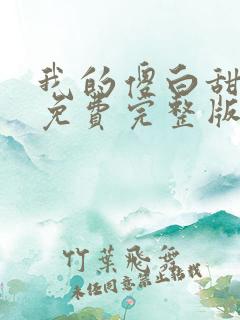 我的傻白甜
免費完整版
竹葉飛舞
未经同意禁止转载